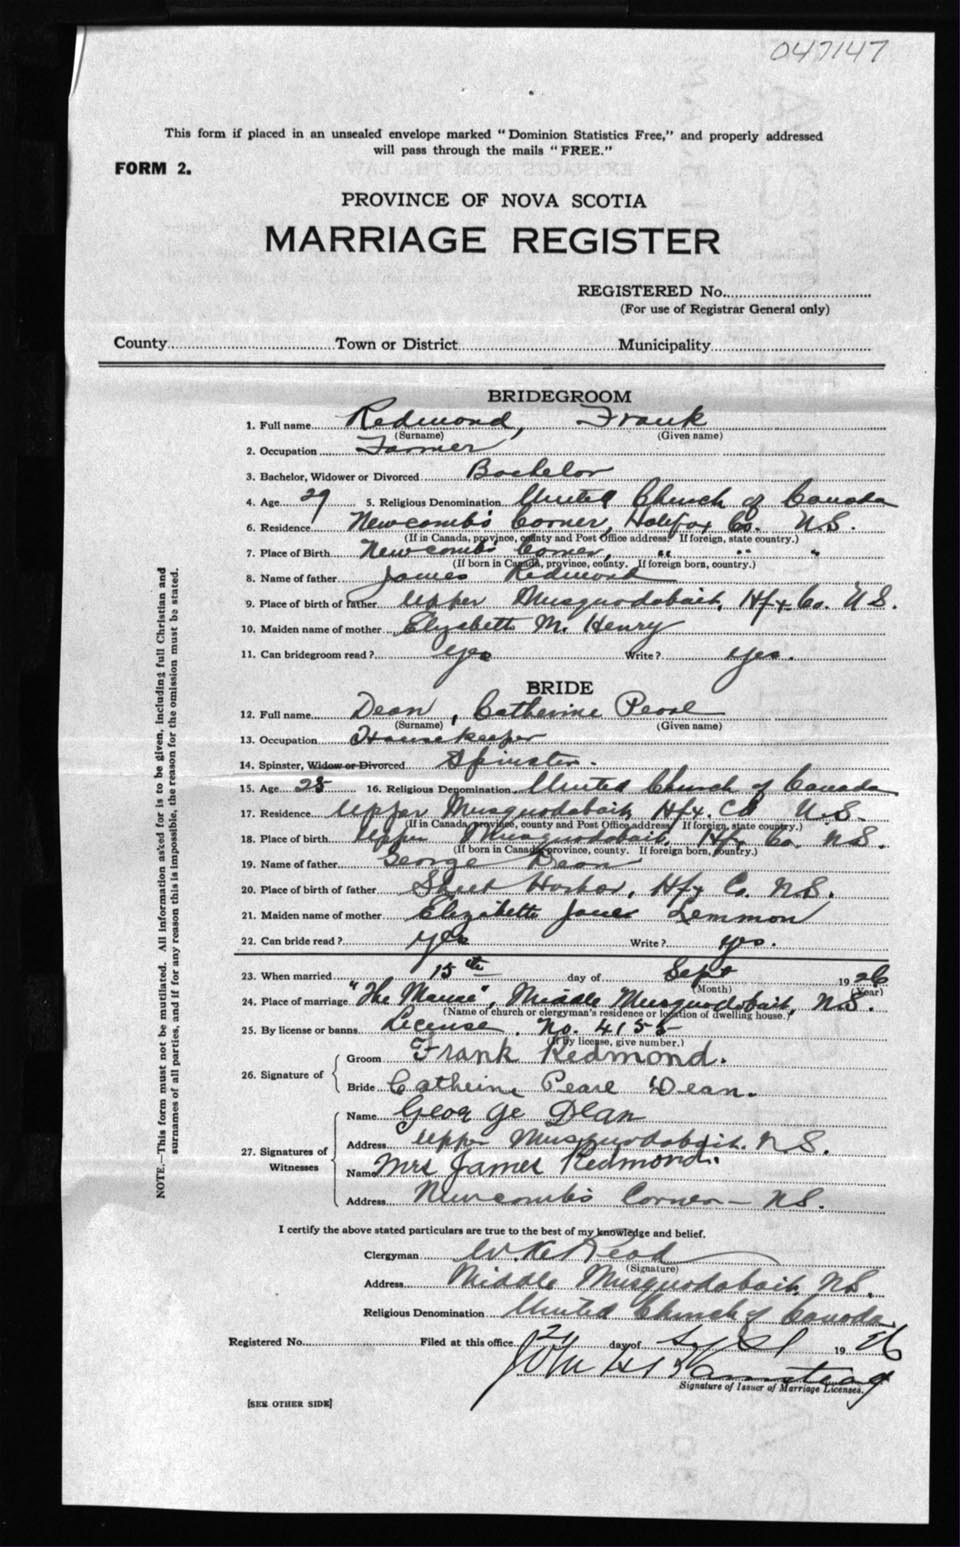 047147
This form if placed in an unsealed envelope marked "Dominion Statistics Free," and properly addressed
will pass through the mails "FREE."
FORM 2.
PROVINCE OF NOVA SCOTIA
MARRIAGE REGISTER
REGISTERED No.
(For use of Registrar General only)
County Town or District Municipality
BRIDEGROOM
1. Full name Redmond, Frank
(Surname) (Given name)
2. Occupation Farmer
3. Bachelor, Widower or Divorced Bachelor
4. Age 29 5. Religious Denomination United Church of Canada
6. Residence Newcomb's Corner, Halifax Co. N.S.
(If in Canada, province, county and Post Office address. If foreign, state country.)
7. Place of Birth Newcomb's Corner, " " "
(If born in Canada, province, county. If foreign born, country.)
8. Name of father James Redmond
9. Place of birth of father Upper Musquodoboit, Hfx Co. N.S.
10. Maiden name of mother Elizabeth M. Henry
11. Can bridegroom read? yes Write? yes.
BRIDE
12. Full name Dean, Catherine Pearl
(Surname) (Given name)
13. Occupation Housekeeper
14. Spinster, Widow or Divorced Spinster.
15. Age 25 16. Religious Denomination United Church of Canada
17. Residence Upper Musquodoboit, Hfx. Co N.S.
(If in Canada, province, county and Post Office address. If foreign, state country.)
18. Place of birth Upper Musquodoboit, Hfx Co. N.S.
(If born in Canada, province, county. If foreign born, country.)
19. Name of father George Dean
20. Place of birth of father Sheet Harbor, Hfx Co. N.S.
21. Maiden name of mother Elizabeth Lemmon
22. Can bride read? yes Write? yes.
23. When married 15th day of Sept 1926
(Month) (Year)
24. Place of marriage "The Manse", Middle Musquodoboit, N.S.
(Name of church or clergyman's residence or location of dwelling house.)
25. By license or banns License, No. 4155
(If by license, give number.)
26. Signature of
Groom Frank Redmond.
Bride Catherine Pearl Dean.
27. Signatures of Witnesses
Name George Dean
Address Upper Musquodoboit. N.S.
Name Mrs James Redmond.
Address Newcomb's Corner - N.S.
I certify the above stated particulars are true to the best of my knowledge and belief.
Clergyman W. K. Read
(Signature)
Address Middle Musquodoboit, N.S.
Religious Denomination United Church of Canada
Registered No. Filed at this office 21 day of Sept 1926
John
Signature of Issuer of Marriage Licenses.
[SEE OTHER SIDE]
NOTE.—This form must not be mutilated. All information asked for is to be given, including full Christian and
surnames of all parties, and if for any reason this is impossible, the reason for the omission must be stated.